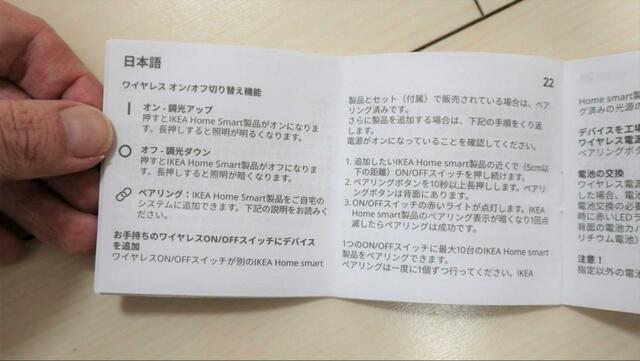 日本語
ワイヤレス オン/オフ切り替え機能
オン - 調光アップ
押すとIKEA Home Smart製品がオンになりま
す。長押しすると照明が明るくなります。
オフ - 調光ダウン
押すとIKEA Home Smart製品がオフになりま
す。長押しすると照明が暗くなります。
ペアリング：IKEA Home Smart製品をご自宅の
システムに追加できます。下記の説明をお読みく
ださい。
お手持ちのワイヤレスON/OFFスイッチにデバイス
を追加
ワイヤレスON/OFFスイッチが別のIKEA Home smart
22
製品とセット（付属）で販売されている場合は、ペア
リング済みです。
さらに製品を追加する場合は、下記の手順をくり返
します。
電源がオンになっていることを確認してください。
1. 追加したいIKEA Home smart製品の近くで（5cm以
下の距離）ON/OFFスイッチを押し続けます。
2. ペアリングボタンを10秒以上長押しします。ペアリ
ングボタンは背面にあります。
3. ON/OFFスイッチの赤いライトが点灯します。IKEA
Home smart製品のペアリング表示が暗くなり1回点
滅したらペアリングは成功です。
1つのON/OFFスイッチに最大10台のIKEA Home smart
製品をペアリングできます。
ペアリングは一度に1個ずつ行ってください。IKEA
Home smart製品
グ済みの光源の
デバイスを工場
ワイヤレス電源
ペアリングボタ
電池の交換
ワイヤレス電
した場合、電
電池交換の必要
時に赤いLEDで
背面の電池カバ
リチウム電池）
注意！
指定以外の電池